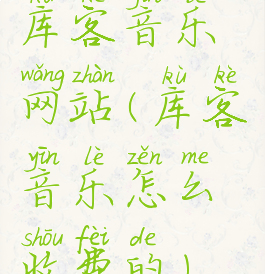 kù kè yīn lè
库客音乐
wǎng zhàn kù kè
网站(库客
yīn lè zěn me
音乐怎么
shōu fèi de
收费的)